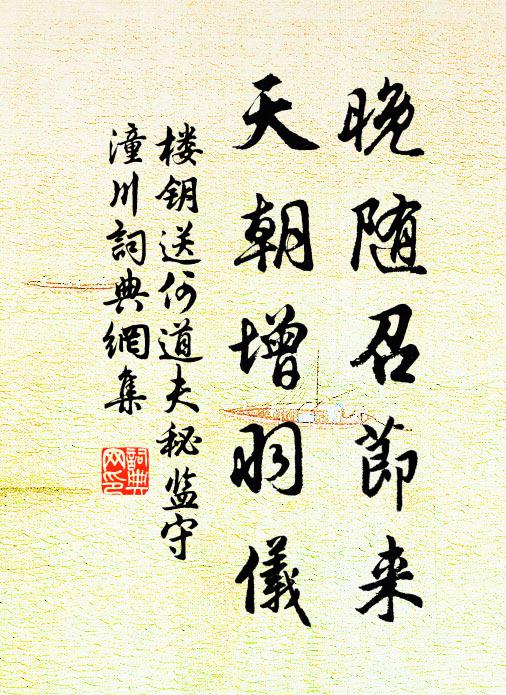 晚随召節来
天朝增羽儀
楼钥送何道夫秘监守
潼川詞典網集
詞典
网印